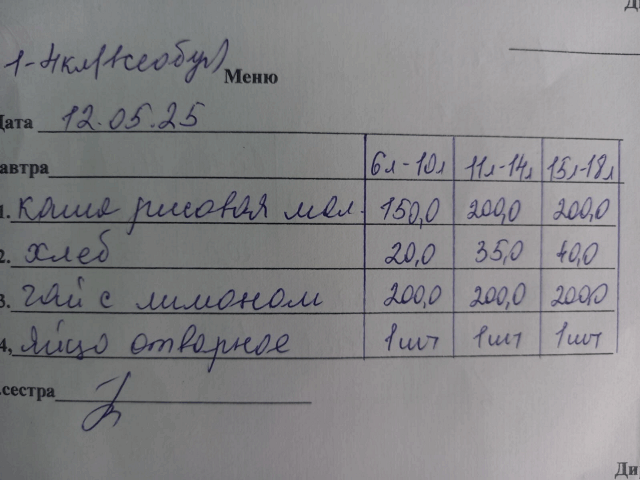 Ди
1-4кл(+всеобуч)
Меню
Дата 12.05.25
автра 6л-10л 11л-14л 15л-18л
1. каша рисовая мол. 150,0 200,0 200,0
2. хлеб 20,0 35,0 40,0
3. чай с лимоном 200,0 200,0 200,0
4, яйцо отварное 1шт 1шт 1шт
.сестра
Ди